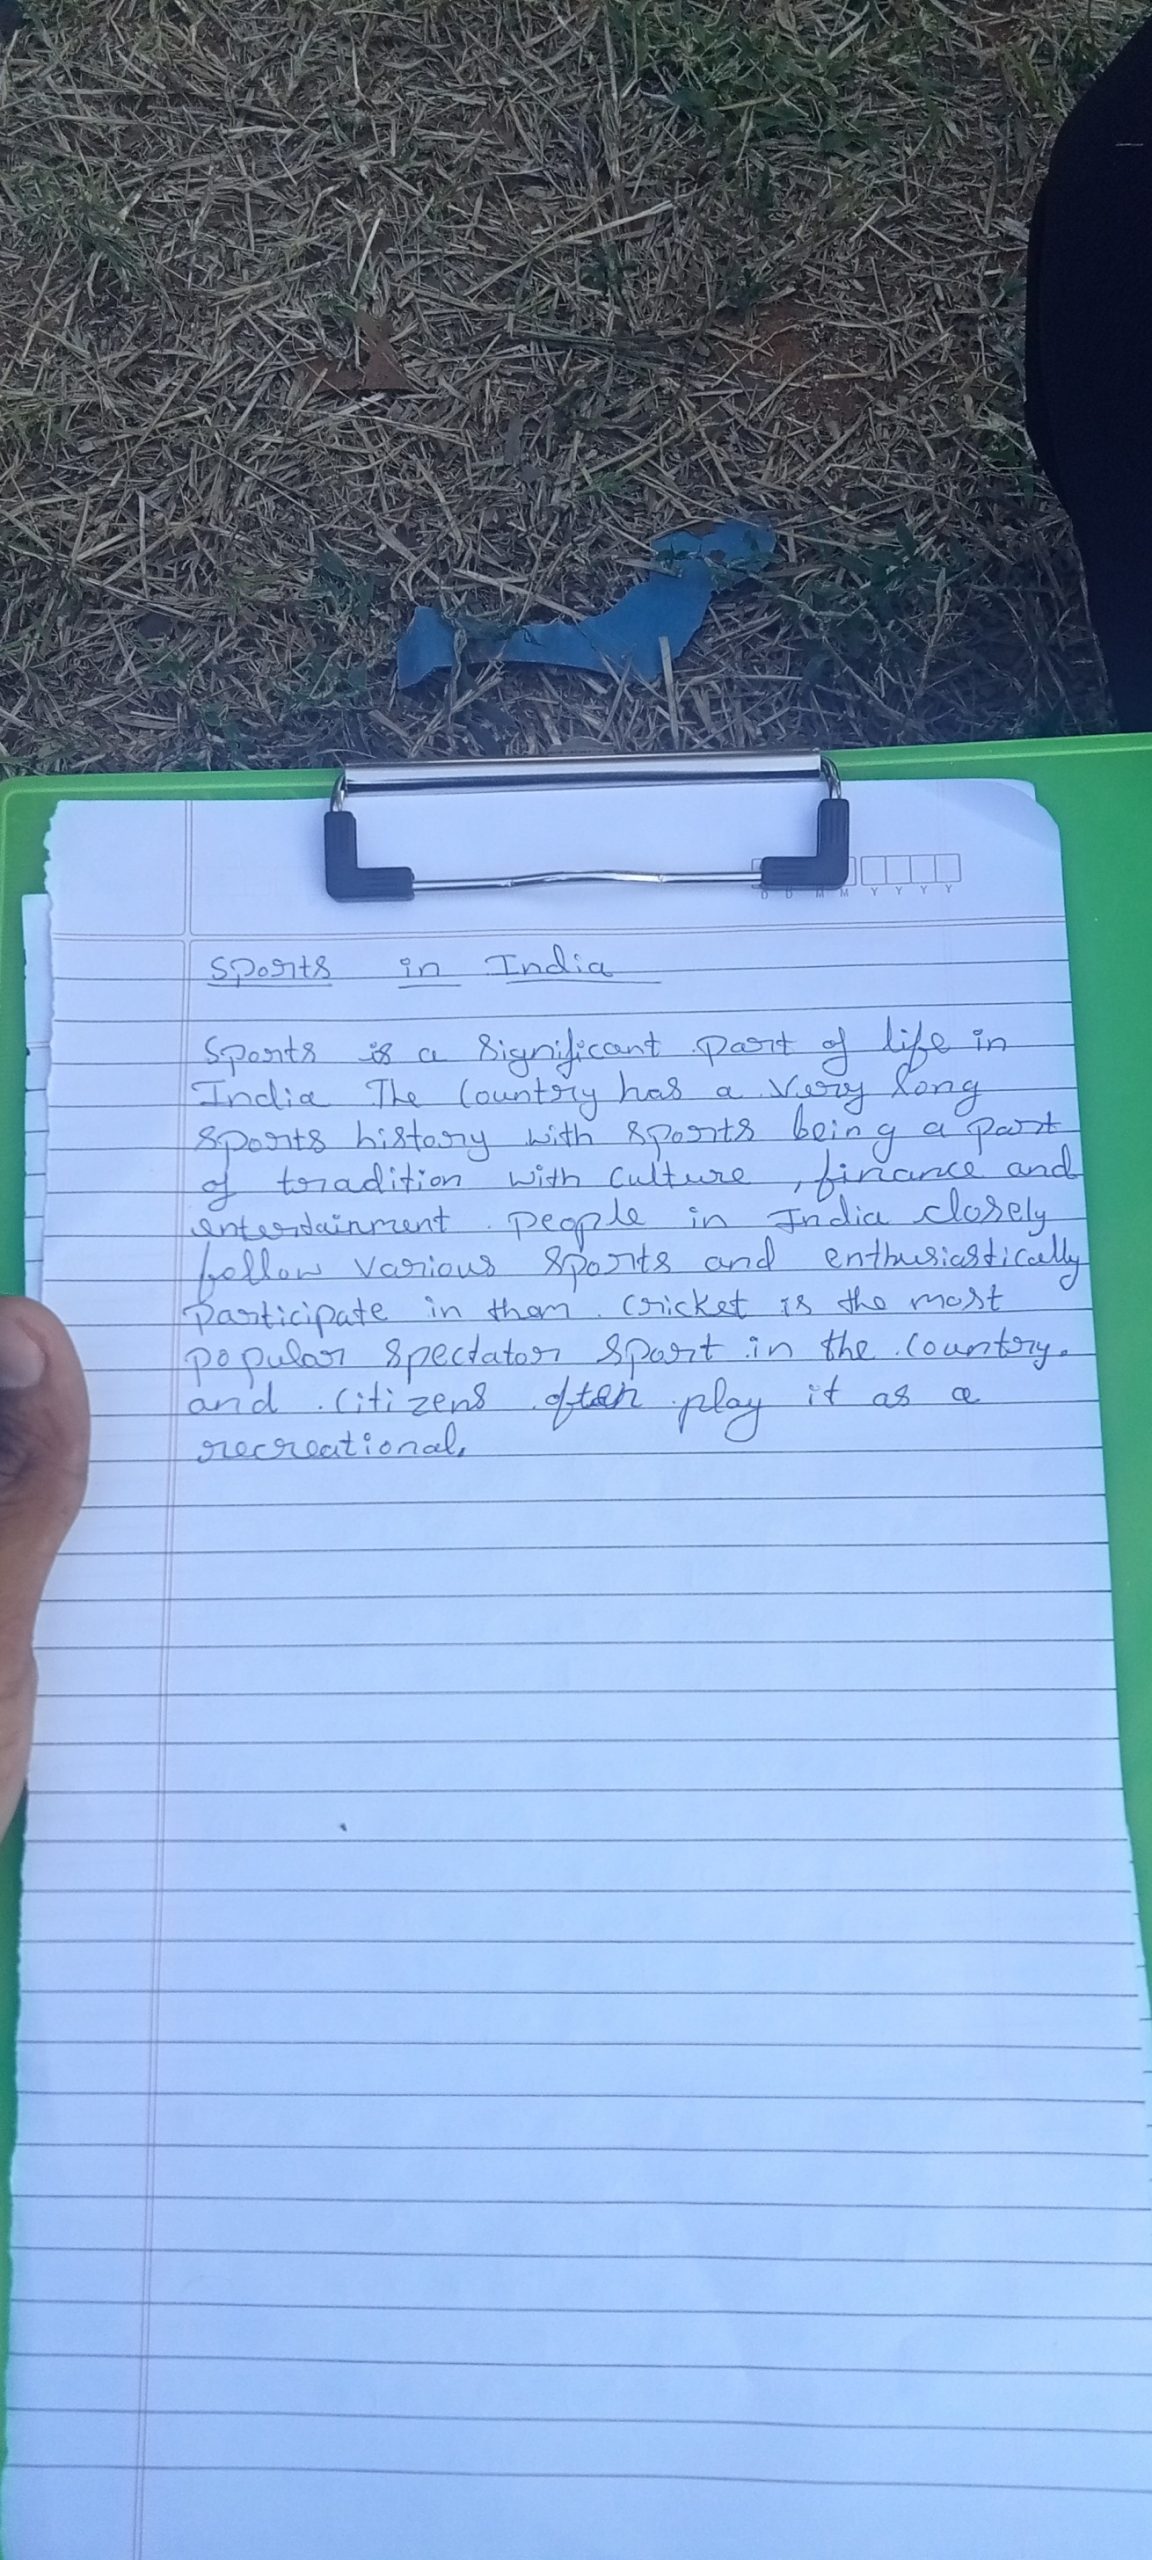 D D M M Y Y Y Y
Sports in India
Sports is a significant part of life in
India The Country has a very long
sports history with sports being a part
of tradition with culture , finance and
entertainment . people in India closely
follow various sports and enthusiastically
participate in them . cricket is the most
popular spectator sport in the country.
and citizens often play it as a
recreational.